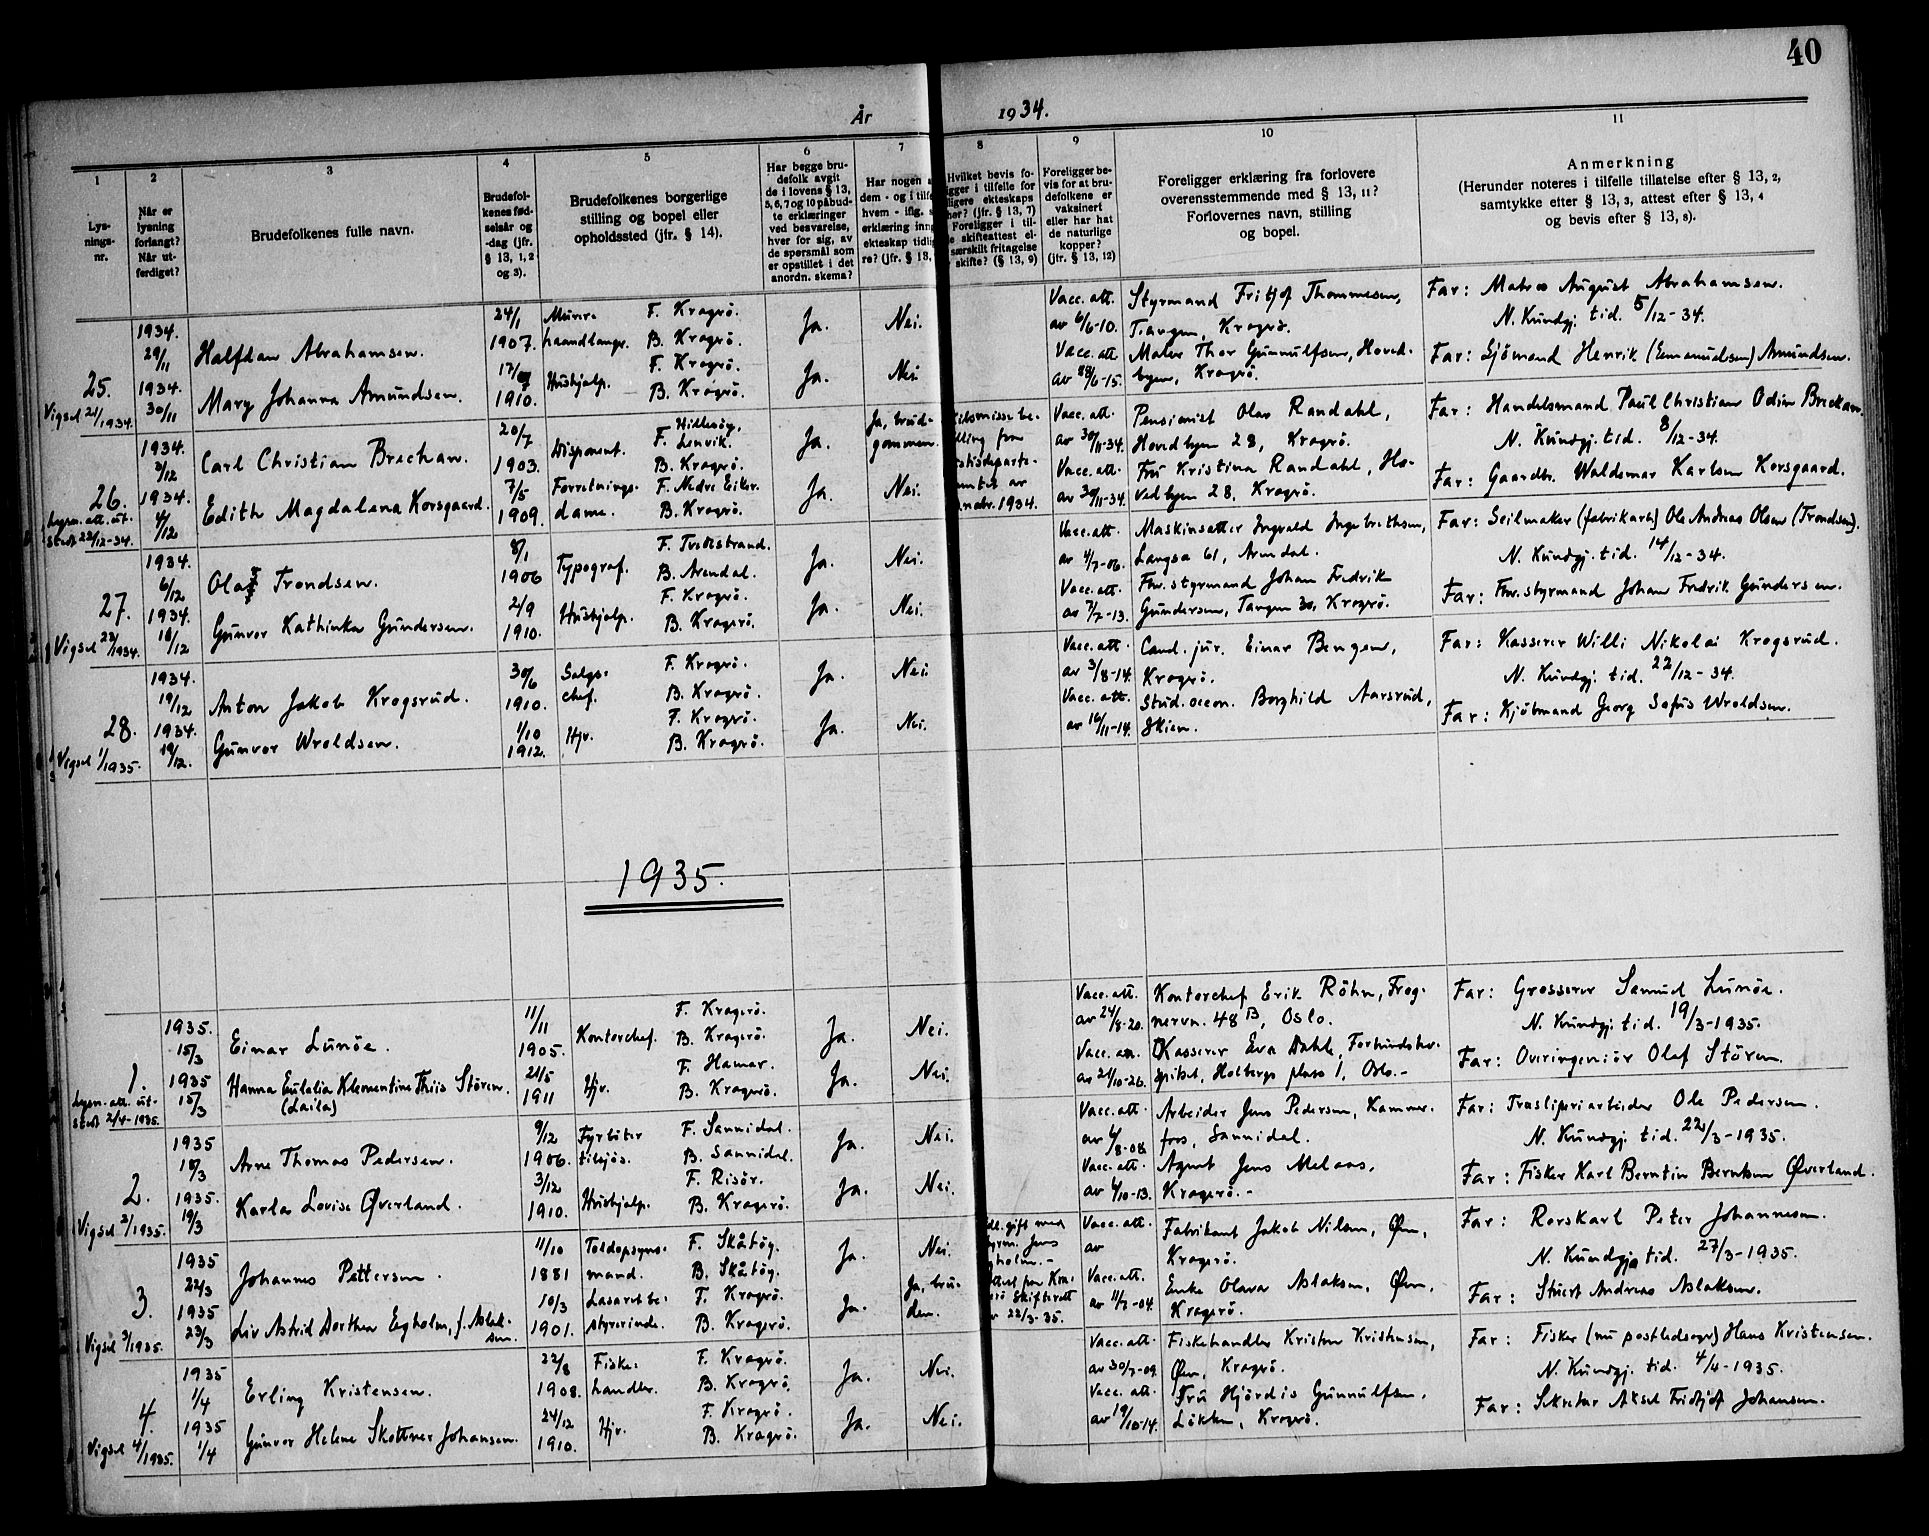 40
År 1934.
1
Lys-
nings-
nr.
2
Når er
lysning
forlangt?
Når ut-
ferdiget?
3
Brudefolkenes fulle navn.
4
Brudefol-
kenes fød-
selsår og
-dag (jfr.
§ 13, 1, 2
og 3).
5
Brudefolkenes borgerlige
stilling og bopel eller
opholdssted (jfr. § 14).
6
Har begge bru-
defolk avgit
de i lovens § 13,
5, 6, 7 og 10 påbud-
te erklæringer
ved besvarelse,
hver for sig, av
de spørsmål som
er opstillet i det
anordn. skema?
7
Har nogen
dem - og i tilf
hvem - iflg.
erklæring inng
ekteskap tidlig
re? (jfr. § 13,
8
Hvilket bevis fo-
igger i tilfelle for
ligere ekteskaps
hør? (jfr. § 13, 7)
Foreligger i til-
e skifteattest el-
særskilt fritagelse
skifte? (§ 13, 9)
9
Foreligger be-
vis for at bru-
defolkene er
vaksinert
eller har hat
de naturlige
kopper?
(jfr. § 13, 12)
10
Foreligger erklæring fra forlovere
overensstemmende med § 13, 11?
Forlovernes navn, stilling
og bopel.
11
Anmerkning
(Herunder noteres i tilfelle tillatelse efter § 13, 2,
samtykke efter § 13, 3, attest efter § 13, 4
og bevis efter § 13, 8).
25.
Vigsel 21/1934.
1934.
29/11
Halfdan Abrahamsen.
24/1
1907.
Murer- F. Kragerö.
haandlanger. B. Kragerö.
Ja. Nei.
Vacc. att.
av 6/6-10.
Styrmand Fritjof Thommesen,
Tangen, Kragerö.
Far: Matros August Abrahamsen.
N. Kundgj. tid. 5/12-34.
1934.
30/11
Mary Johanna Amundsen.
1910.
Hushjelp. F. Kragerö.
B. Kragerö.
Ja. Nei.
Vacc. att.
Maler Thor Gunnulfsen, Hoved-
byen, Kragerö.
Far: Sjömand Henrik (Emanuelsen) Amundsen.
26.
Lysn. att. ut-
stedt 22/12-34.
1934.
3/12
Carl Christian Brechan.
20/7
1903.
Disponent. F. Hillesöy, Lenvik.
B. Kragerö.
Ja. Ja, brud-
gommen.
1934.
Vacc. att.
av 30/11-34.
Pensionist Olav Randahl,
Hovedbyen 28, Kragerö.
Far: Handelsmand Paul Christian Odin Brechan.
N. Kundgj. tid. 8/12-34.
1934.
4/12
Edith Magdalena Korsgaard.
7/5
1909.
Forretnings- F. Nedre Eiker.
dame. B. Kragerö.
Ja. Nei.
Vacc. att.
av 30/11-34.
Fru Kristina Randahl, Ho-
vedbyen 28, Kragerö.
Far: Gaardbr. Waldemar Karlsen Korsgaard.
27.
Vigsel 22/1934.
1934.
6/12
Olaf Trondsen.
8/1
1906
Typograf. F. Tvedestrand.
B. Arendal.
Ja. Nei.
Vacc. att.
av 4/7-06.
Maskinsetter Ingvald Ingebrethsen,
Langsæ 61, Arendal.
Far: Seilmaker (fabrikarb.) Ole Andreas Olsen (Trondsen).
N. Kundgj. tid. 14/12-34.
1934.
10/12
Gunvor Kathinka Gundersen.
2/9
1910.
Hushjelp. F. Kragerö.
B. Kragerö.
Ja. Nei.
Vacc. att.
av 7/7-13.
Fhv. styrmand Johan Fredrik
Gundersen, Tangen 30, Kragerö.
Far: Fhv. styrmand Johan Fredrik Gundersen.
28.
Vigsel 1/1935.
1934.
19/12
Anton Jakob Krogsrud.
30/6
1910.
Salgs- F. Kragerö.
chef. B. Kragerö.
Ja. Nei.
Vacc. att.
av 3/8-14.
Cand. jur. Einar Bengen,
Kragerö.
Far: Kasserer Willi Nikolai Krogsrud.
N. Kundgj. tid. 22/12-34.
1934.
19/12.
Gunvor Wroldsen.
1/10
1912.
Hjv. F. Kragerö.
B. Kragerö.
Ja. Nei.
Vacc. att.
av 16/11-14.
Stud. oecon. Borghild Aarsrud,
Skien.
Far: Kjöbmand Georg Sofus Wroldsen.
1935.
1.
Lysn. att. ut-
stedt 2/4-1935.
1935.
15/3
Einar Lunöe.
11/11
1905.
Kontorchef. F. Kragerö.
B. Kragerö.
Ja. Nei.
Vacc. att.
av 24/8-20.
Kontorchef Erik Röhn, Frog-
nervn. 48 B, Oslo.
Far: Grosserer Samuel Lunöe.
N. Kundgj. tid. 19/3-1935.
1935
15/3
Hanna Eulalia Klementine Thiis Stören.
(Laila)
21/5
1911
Hjv. F. Hamar.
B. Kragerö.
Ja. Nei.
Vacc. att.
av 21/10-26.
Kasserer Eva Dahle,
Holbergs plass 1, Oslo.-
Far: Overingeniör Olaf Stören.
2.
Vigsel 2/1935.
1935
18/3
Arne Thomas Pedersen.
9/12
1906.
Fyrböter F. Sannidal.
tilsjös. B. Sannidal.
Ja. Nei.
Vacc. att.
Arbeider Jens Pedersen, Kammer-
foss, Sannidal.
Far: Tresliperiarbeider Ole Pedersen.
N. Kundgj. tid. 22/3-1935.
1935.
19/3
Karla Lovise Øverland.
3/12
1910.
Hushjelp. F. Risör.
B. Kragerö.
Ja. Nei.
Vacc. att.
Agent Jens Melaas,
Kragerö.-
Far: Fisker Karl Berntin Berntsen Øverland.
3.
Vigsel 3/1935.
1935
22/3
Johannes Pettersen.
11/10
1881
Toldopsyns- F. Skåtöy.
mand. B. Skåtöy.
Ja. Nei.
gift med
Jens
holm.-
Vacc. att.
av
Fabrikant Jakob Nilsen, Øen,
Kragerö.
Far: Rorskarl Peter Johannesen.
N. Kundgj. tid. 27/3-1935.
1935
23/3
Liv Astrid Dorthea Egholm, f. Aslak-
sen.
10/3
1901.
Lasarettbe- F. Kragerö.
styrerinde. B. Kragerö.
Ja. Ja, bru-
den.
skifterett
22/3-35.
Vacc. att.
av 11/7-04.
Enke Olava Aslaksen, Øen,
Kragerö.
Far: Stuert Andreas Aslaksen.
4.
Vigsel 4/1935.
1935
1/4
Erling Kristensen.
22/8
1908.
Fiske- F. Kragerö.
handler. B. Kragerö.
Ja. Nei.
Vacc. att.
av 30/7-09.
Fiskehandler Kristen Kristensen,
Øen, Kragerö.
Far: Fisker (nu postbedsager) Hans Kristensen.
N. Kundgj. tid. 4/4-1935.
1935
1/4
Gunvor Helene Skottner Johansen.
24/12
1910.
Hjv. F. Kragerö.
B. Kragerö.
Ja. Nei.
Vacc. att.
av 19/10-14.
Fru Hjördis Gunnulfsen,
Lökken, Kragerö.
Far: Sekretær Aksel Fridtjof Johansen.